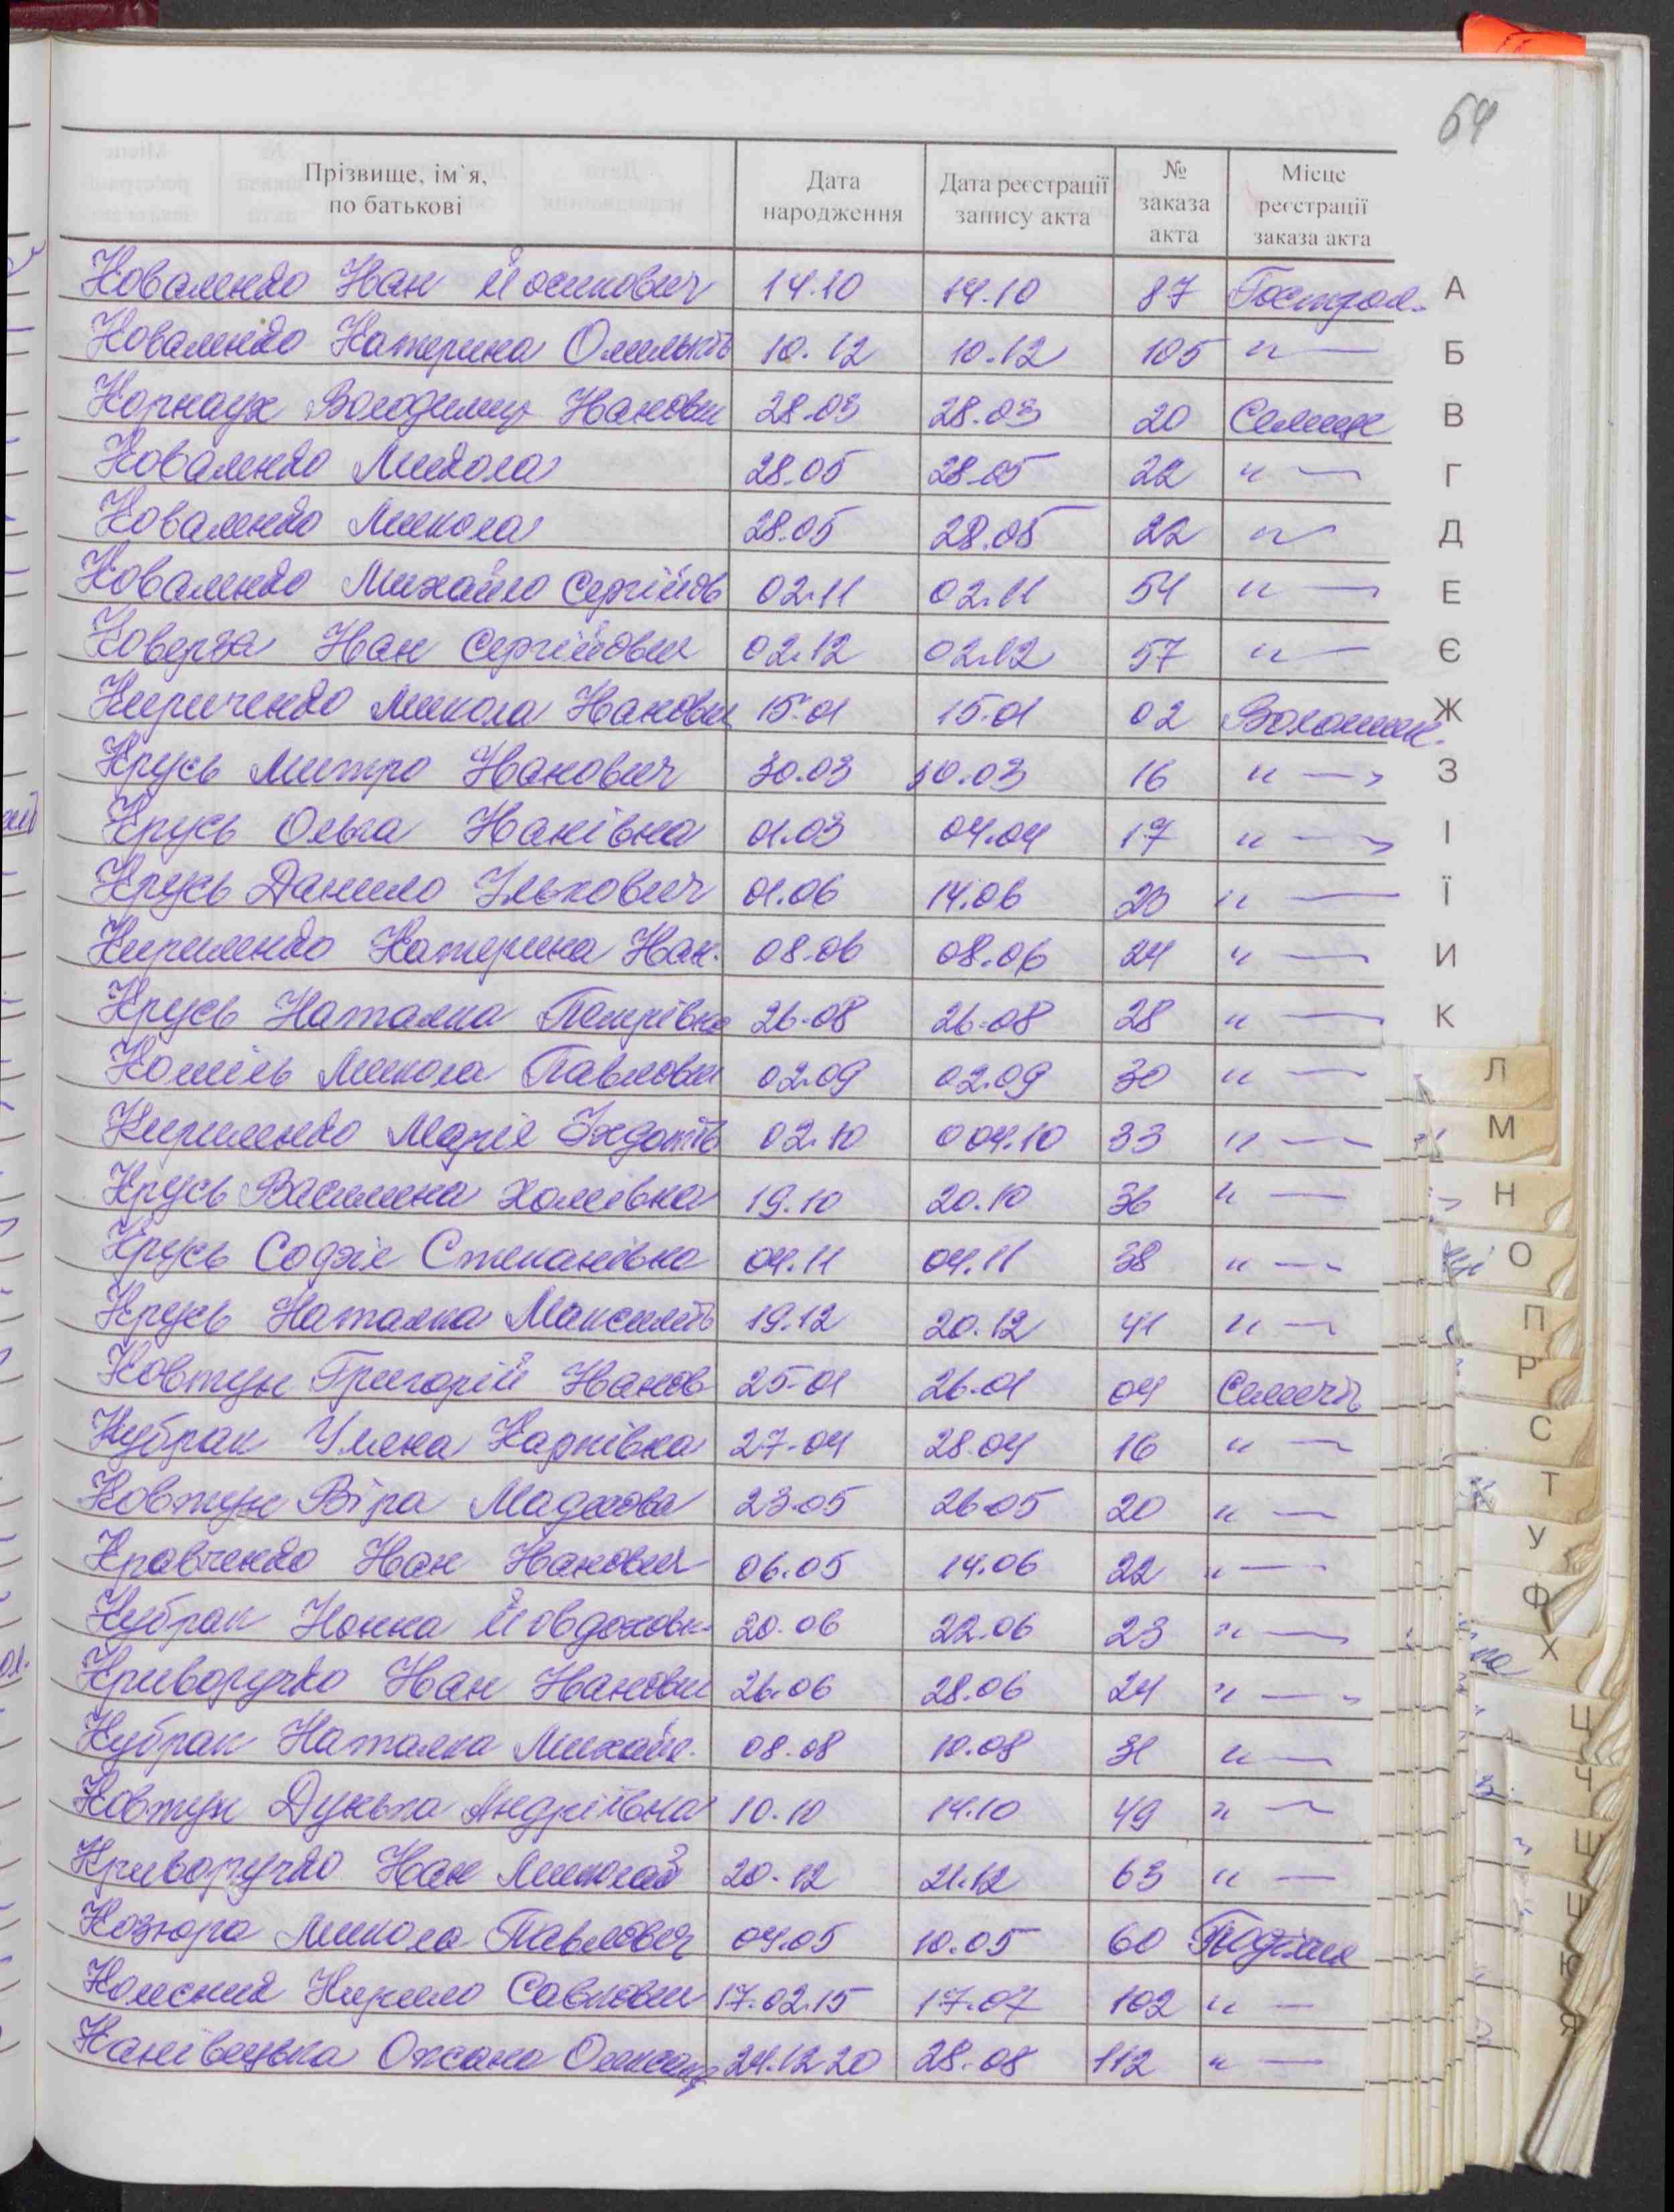 64
Прізвище, ім`я, по батькові Дата народження Дата реєстрації запису акта № заказа акта Місце реєстрації заказа акта
Коваленко Іван Йосипович 14.10 14.10 87 Гострол.
Коваленко Катерина Омельків 10.12 10.12 105 " —
Корнаух Володимир Іванови 28.03 28.03 20 Селище
Коваленко Микола 28.05 28.05 22 " —
Коваленко Микола 28.05 28.05 22 " —
Коваленко Михайло Сергійов 02.11 02.11 54 " —
Коверга Іван Сергійови 02.12 02.12 57 " —
Кириченко Микола Іванови 15.01 15.01 02 Волошин.
Крусь Митро Іванович 30.03 30.03 16 " —
Крусь Ольга Іванівна 01.03 04.04 17 " —
Крусь Данило Ількович 01.06 14.06 20 " —
Кириленко Катерина Іван. 08.06 08.06 24 " —
Крусь Наталка Петрівна 26.08 26.08 28 " —
Коміль Микола Павлови 02.09 02.09 30 " —
Кириленко Марія 02.10 004.10 33 " —
Крусь Василина Хомівна 19.10 20.10 36 " —
Крусь Софія Степанівна 04.11 04.11 38 " —
Крусь Наталка Максимів 19.12 20.12 41 " —
Ковтун Григорій Іванов 25.01 26.01 04
Кубрак Уляна Карпівна 27.04 28.04 16 " —
Ковтун Віра 23.05 26.05 20 " —
Кравченко Іван Іванови 06.05 14.06 22 " —
Кубрак Йовдохов. 20.06 22.06 23 " —
Криворучко Іван Іванови 26.06 28.06 24 " —
Кубрак Наталка Михайл. 08.08 10.08 31 " —
Ковтун Дунька Андріївна 10.10 14.10 49 " —
Криворучко Іван Миколай 20.12 21.12 63 " —
Козюра Микола Павлович 04.05 10.05 60
Колесник Кирило Савлови 17.02.15 17.07 102 " —
Канівецька Оксана Олександ 24.12.20 28.08 112 " —
А
Б
В
Г
Д
Е
Є
Ж
З
І
Ї
И
К
Л
М
Н
О
П
Р
С
Т
У
Ф
Х
Ц
Ч
Ш
Щ
Ю
Я